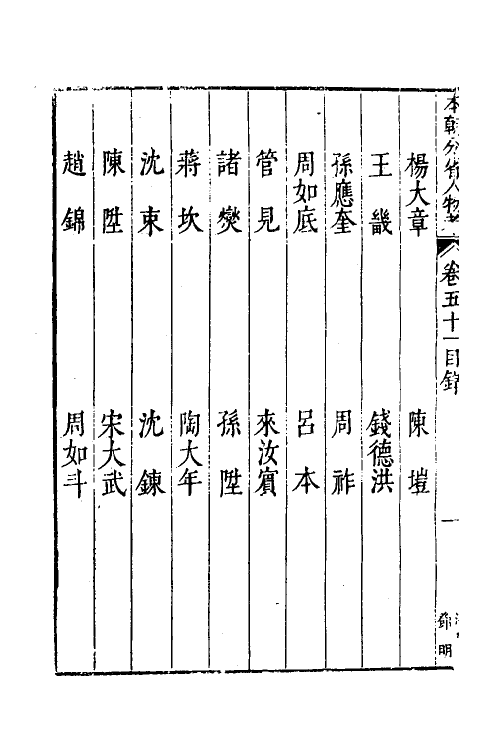 本朝分省人物考 卷五十一目錄 一
楊大章 陳塏
王畿 錢德洪
孫應奎 周祚
周如底 呂本
管見 來汝賓
諸爕 孫陞
蔣坎 陶大年
沈束 沈鍊
陳陞 宋大武
趙錦 周如斗